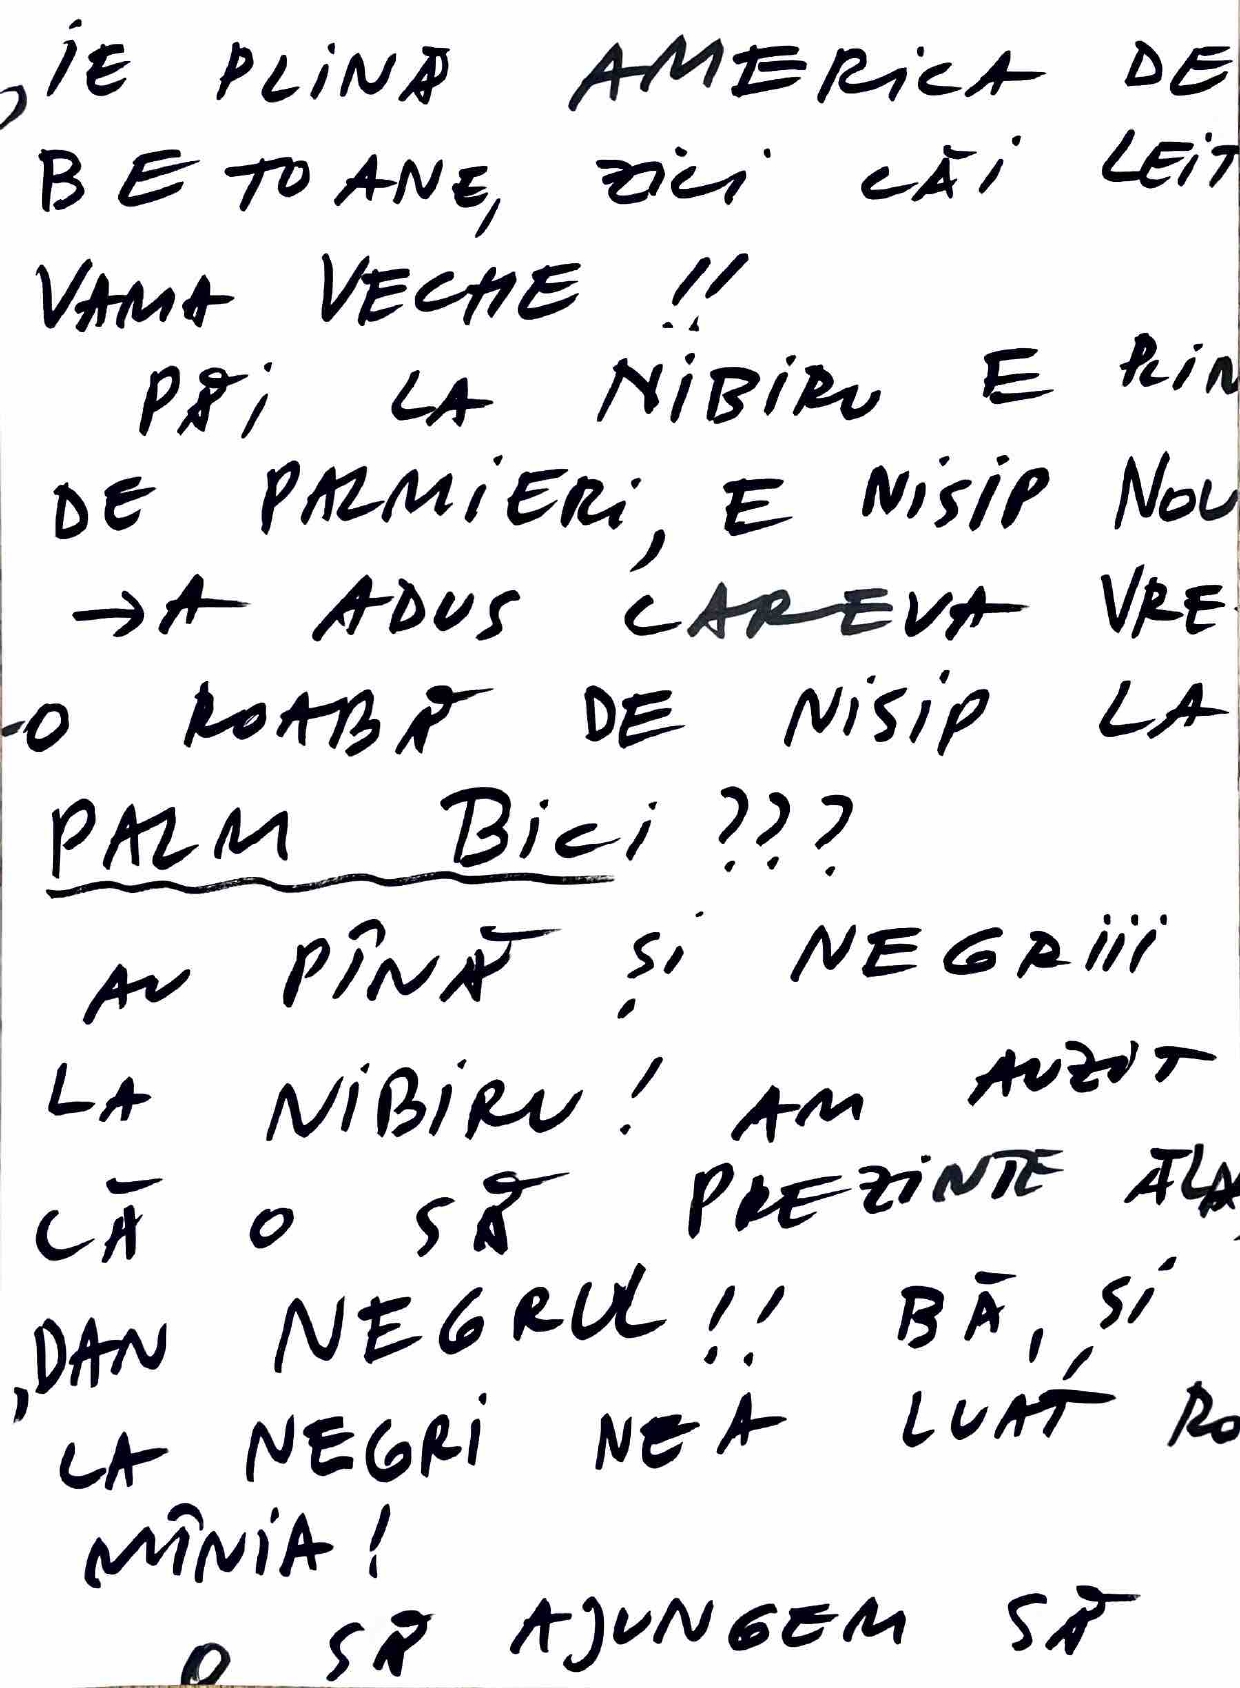 ,IE PLINĂ AMERICA DE
BETOANE, ZICI CĂI LEIT
VAMA VECHE !!
PĂI LA NIBIRU E PLIN
DE PALMIERI, E NISIP NOU
→A ADUS CAREVA VRE-
-O ROABĂ DE NISIP LA
PALM BICI ???
AU PÎNĂ ȘI NEGRIII
LA NIBIRU! AM AUZIT
CĂ O SĂ PREZINTE ĂLA,
,DAN NEGRUL!! BĂ, ȘI
LA NEGRI NE A LUAT RO
MÎNIA!
O SĂ AJUNGEM SĂ